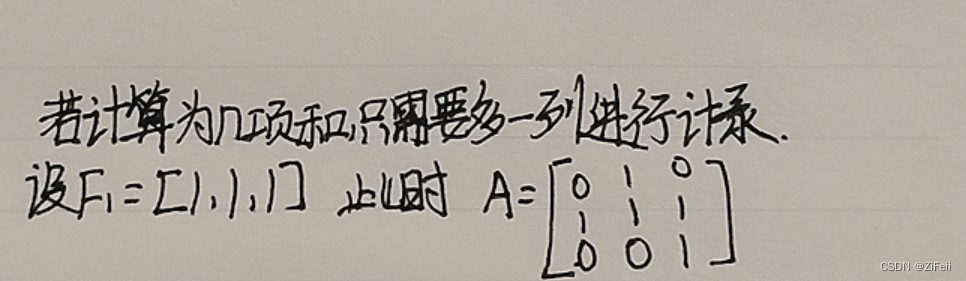 若计算为n项和,只需要多一列进行计录.
设F₁=[1,1,1] 此时 A=[0 1 0
1 1 1
0 0 1]
CSDN @ZiFeii